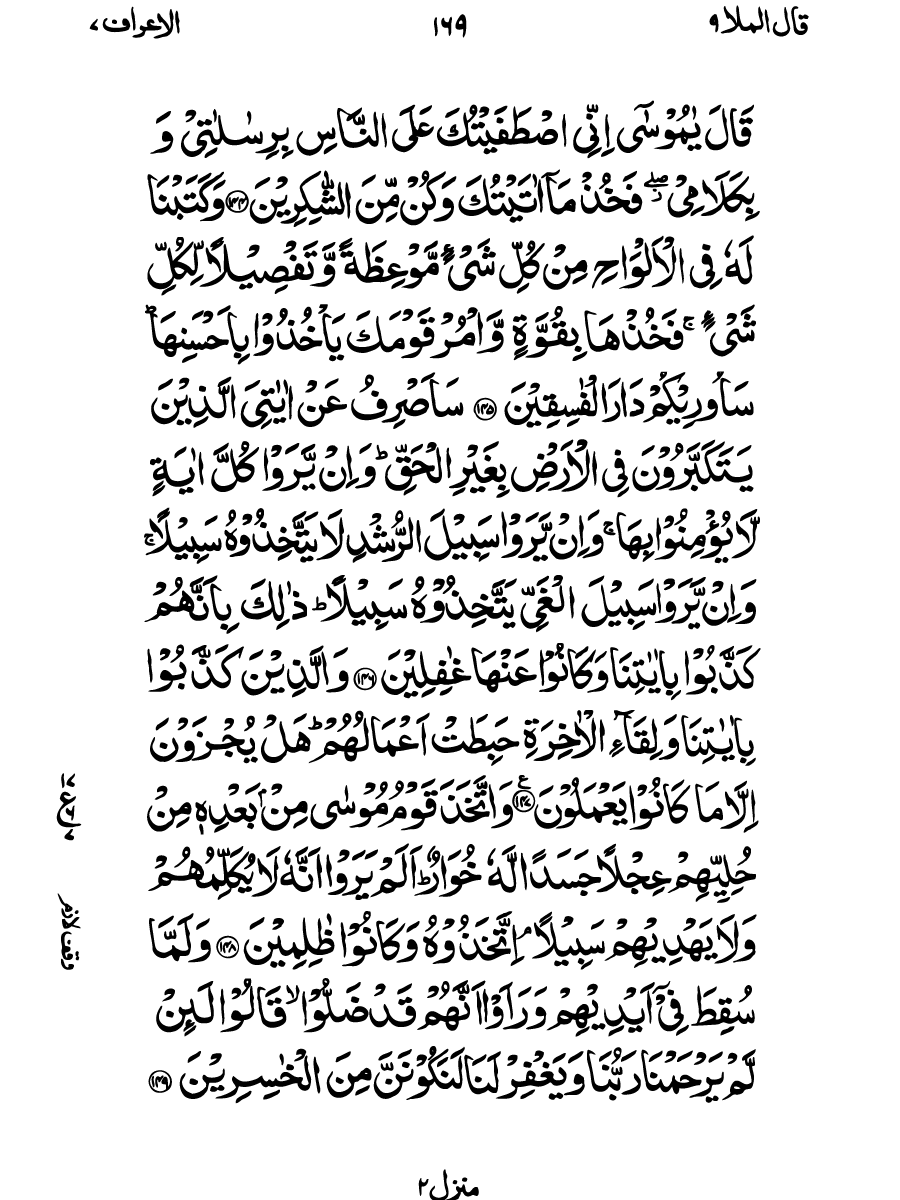 قال الملا ۹
۱۶۹
الاعراف ۷
قَالَ يٰمُوْسٰٓى اِنِّى اصْطَفَيْتُكَ عَلَى النَّاسِ بِرِسٰلٰتِىْ وَ
بِكَلَامِىْ ۖ فَخُذْ مَاۤ اٰتَيْتُكَ وَكُنْ مِّنَ الشّٰكِرِيْنَ ﴿۱۴۴﴾ وَكَتَبْنَا
لَهٗ فِى الْاَلْوَاحِ مِنْ كُلِّ شَىْءٍ مَّوْعِظَةً وَّ تَفْصِيْلًا لِّكُلِّ
شَىْءٍ ۚ فَخُذْهَا بِقُوَّةٍ وَّاْمُرْ قَوْمَكَ يَاْخُذُوْا بِاَحْسَنِهَا ؕ
سَاُورِيْكُمْ دَارَ الْفٰسِقِيْنَ ﴿۱۴۵﴾ سَاَصْرِفُ عَنْ اٰيٰتِىَ الَّذِيْنَ
يَتَكَبَّرُوْنَ فِى الْاَرْضِ بِغَيْرِ الْحَقِّ ؕ وَاِنْ يَّرَوْا كُلَّ اٰيَةٍ
لَّا يُؤْمِنُوْا بِهَا ۚ وَاِنْ يَّرَوْا سَبِيْلَ الرُّشْدِ لَا يَتَّخِذُوْهُ سَبِيْلًا ۚ
وَاِنْ يَّرَوْا سَبِيْلَ الْغَىِّ يَتَّخِذُوْهُ سَبِيْلًا ؕ ذٰلِكَ بِاَنَّهُمْ
كَذَّبُوْا بِاٰيٰتِنَا وَكَانُوْا عَنْهَا غٰفِلِيْنَ ﴿۱۴۶﴾ وَالَّذِيْنَ كَذَّبُوْا
بِاٰيٰتِنَا وَلِقَآءِ الْاٰخِرَةِ حَبِطَتْ اَعْمَالُهُمْ ؕ هَلْ يُجْزَوْنَ
اِلَّا مَا كَانُوْا يَعْمَلُوْنَ ﴿۱۴۷﴾ ع وَاتَّخَذَ قَوْمُ مُوْسٰى مِنْۢ بَعْدِهٖ مِنْ
حُلِيِّهِمْ عِجْلًا جَسَدًا لَّهٗ خُوَارٌ ؕ اَلَمْ يَرَوْا اَنَّهٗ لَا يُكَلِّمُهُمْ
وَلَا يَهْدِيْهِمْ سَبِيْلًا ۘ اِتَّخَذُوْهُ وَكَانُوْا ظٰلِمِيْنَ ﴿۱۴۸﴾ وَلَمَّا
سُقِطَ فِىْۤ اَيْدِيْهِمْ وَرَاَوْا اَنَّهُمْ قَدْ ضَلُّوْا ۙ قَالُوْا لَىِٕنْ
لَّمْ يَرْحَمْنَا رَبُّنَا وَيَغْفِرْ لَنَا لَنَكُوْنَنَّ مِنَ الْخٰسِرِيْنَ ﴿۱۴۹﴾
وقف لازم
منزل ۲